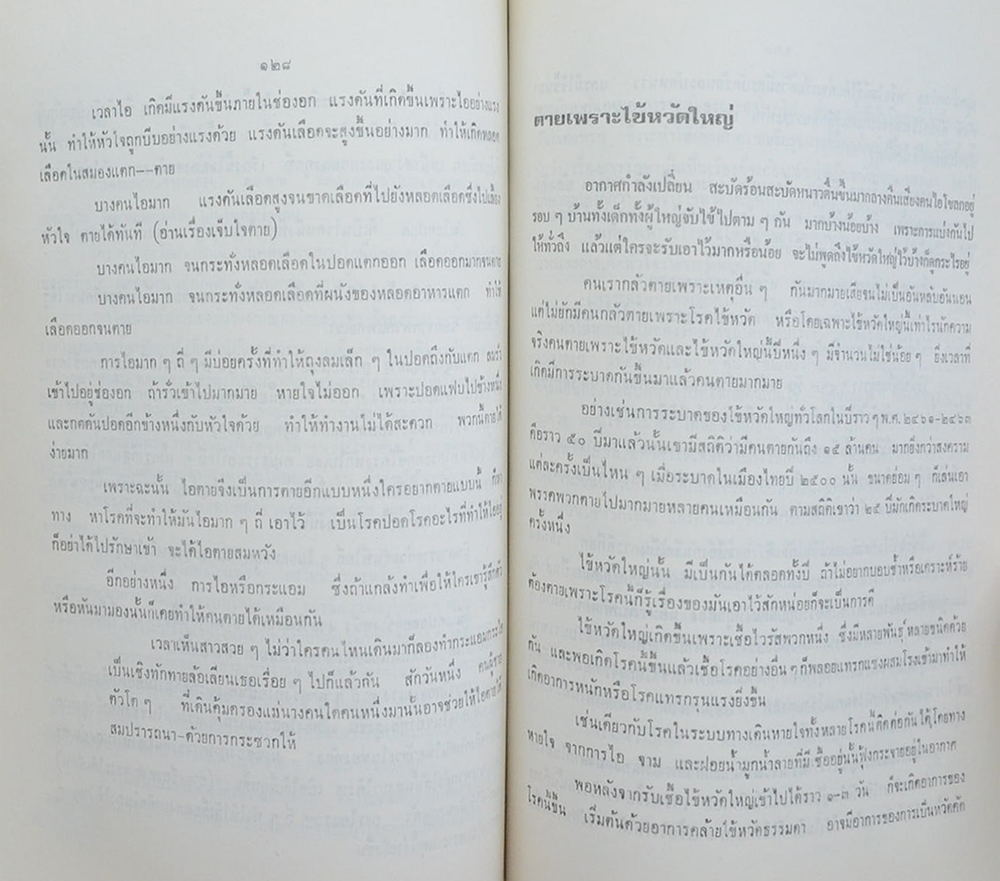 ๑๒๘
เวลาไอ เกิดมีแรงดันขึ้นภายในช่องอก แรงดันที่เกิดขึ้นเพราะไออย่างแรง
นั้น ทำให้หัวใจถูกบีบอย่างแรงด้วย แรงดันเลือดจะสูงขึ้นอย่างมาก ทำให้เกิดหลอด
เลือดในสมองแตก--ตาย
บางคนไอมาก แรงดันเลือดสูงจนขาดเลือดที่ไปยังหลอดเลือดซึ่งไปเลี้ยง
หัวใจ ตายได้ทันที (อ่านเรื่องเจ็บใจตาย)
บางคนไอมาก จนกระทั่งหลอดเลือดในปอดแตกออก เลือดออกมากจนตาย
บางคนไอมาก จนกระทั่งหลอดเลือดที่ผนังของหลอดอาหารแตก ทำให้
เลือดออกจนตาย
การไอมาก ๆ ถี่ ๆ มีบ่อยครั้งที่ทำให้ถุงลมเล็ก ๆ ในปอดถึงกับแตก ลมรั่ว
เข้าไปอยู่ช่องอก ถ้ารั่วเข้าไปมากมาย หายใจไม่ออก เพราะปอดแฟบไปข้างหนึ่ง
และกดดันปอดอีกข้างหนึ่งกับหัวใจด้วย ทำให้ทำงานไม่ได้สะดวก พวกนี้ตายได้
ง่ายมาก
เพราะฉะนั้น ไอตายจึงเป็นการตายอีกแบบหนึ่งใครอยากตายแบบนี้ ก็หา
ทาง หาโรคที่จะทำให้มันไอมาก ๆ ถี่ เอาไว้ เป็นโรคปอดโรคอะไรที่ทำให้ไออยู่
ก็อย่าได้ไปรักษาเข้า จะได้ไอตายสมหวัง
อีกอย่างหนึ่ง การไอหรือกระแอม ซึ่งถ้าแกล้งทำเพื่อให้ใครเขารู้สึกตัว
หรือหันมามองนั้นก็เคยทำให้คนตายได้เหมือนกัน
เวลาเห็นสาวสวย ๆ ไม่ว่าใครคนไหนเดินมาก็ลองทำกระแอมกระไอ
เป็นเชิงทักทายล้อเลียนเธอเรื่อย ๆ ไปก็แล้วกัน สักวันหนึ่ง คนผู้ชาย
ตัวโต ๆ ที่เดินคุ้มครองแม่นางคนใดคนหนึ่งมานั้นอาจช่วยให้ไอตายได้
สมปรารถนา-ด้วยการกระซวกให้
ตายเพราะไข้หวัดใหญ่
อากาศกำลังเปลี่ยน สะบัดร้อนสะบัดหนาวตื่นขึ้นมากลางคืนเสียงคนไอโขลกอยู่
รอบ ๆ บ้านทั้งเด็กทั้งผู้ใหญ่จับไข้ไปตาม ๆ กัน มากบ้างน้อยบ้าง เพราะการแบ่งกันไป
ให้ทั่วถึง แล้วแต่ใครจะรับเอาไว้มากหรือน้อย จะไม่พูดถึงไข้หวัดใหญ่ไว้บ้างก็ดูกระไรอยู่
คนเรากลัวตายเพราะเหตุอื่น ๆ กันมากมายเสียจนไม่เป็นอันหลับอันนอน
แต่ไม่ยักมีคนกลัวตายเพราะโรคไข้หวัด หรือโดยเฉพาะไข้หวัดใหญ่นี้เท่าไรนักความ
จริงคนตายเพราะไข้หวัดและไข้หวัดใหญ่นี้ปีหนึ่ง ๆ มีจำนวนไม่ใช่น้อย ๆ ยิ่งเวลาที่
เกิดมีการระบาดกันขึ้นมาแล้วคนตายมากมาย
อย่างเช่นการระบาดของไข้หวัดใหญ่ทั่วโลกในปีราว ๆ พ.ศ. ๒๔๖๑-๒๔๖๓
คือราว ๕๐ ปีมาแล้วนั้นเขามีสถิติว่ามีคนตายกันถึง ๑๕ ล้านคน มากยิ่งกว่าสงคราม
แต่ละครั้งเป็นไหน ๆ เมื่อระบาดในเมืองไทยปี ๒๕๐๐ นั้น ขนาดย่อม ๆ ก็เล่นเอา
พรรคพวกตายไปมากมายหลายคนเหมือนกัน ตามสถิติเขาว่า ๒๕ ปีมักเกิดระบาดใหญ่
ครั้งหนึ่ง
ไข้หวัดใหญ่นั้น มีเป็นกันได้ตลอดทั้งปี ถ้าไม่อยากบอบช้ำหรือเคราะห์ร้าย
ต้องตายเพราะโรคนี้ก็รู้เรื่องของมันเอาไว้สักหน่อยก็จะเป็นการดี
ไข้หวัดใหญ่เกิดขึ้นเพราะเชื้อไวรัสพวกหนึ่ง ซึ่งมีหลายพันธุ์ หลายชนิดด้วย
กัน และพอเกิดโรคนี้ขึ้นแล้วเชื้อโรคอย่างอื่น ๆ ก็พลอยแทรกแซงผสมโรงเข้ามาทำให้
เกิดอาการหนักหรือโรคแทรกรุนแรงยิ่งขึ้น
เช่นเดียวกับโรคในระบบทางเดินหายใจทั้งหลายโรคนี้ติดต่อกันได้โดยทาง
หายใจ จากการไอ จาม และฝอยน้ำมูกน้ำลายที่มีเชื้ออยู่นั้นฟุ้งกระจายอยู่ในอากาศ
พอหลังจากรับเชื้อไข้หวัดใหญ่เข้าไปได้ราว ๑-๓ วัน ก็จะเกิดอาการของ
โรคนี้ขึ้น เริ่มต้นด้วยอาการคล้ายไข้หวัดธรรมดา อาจมีอาการของการเป็นหวัดคัด